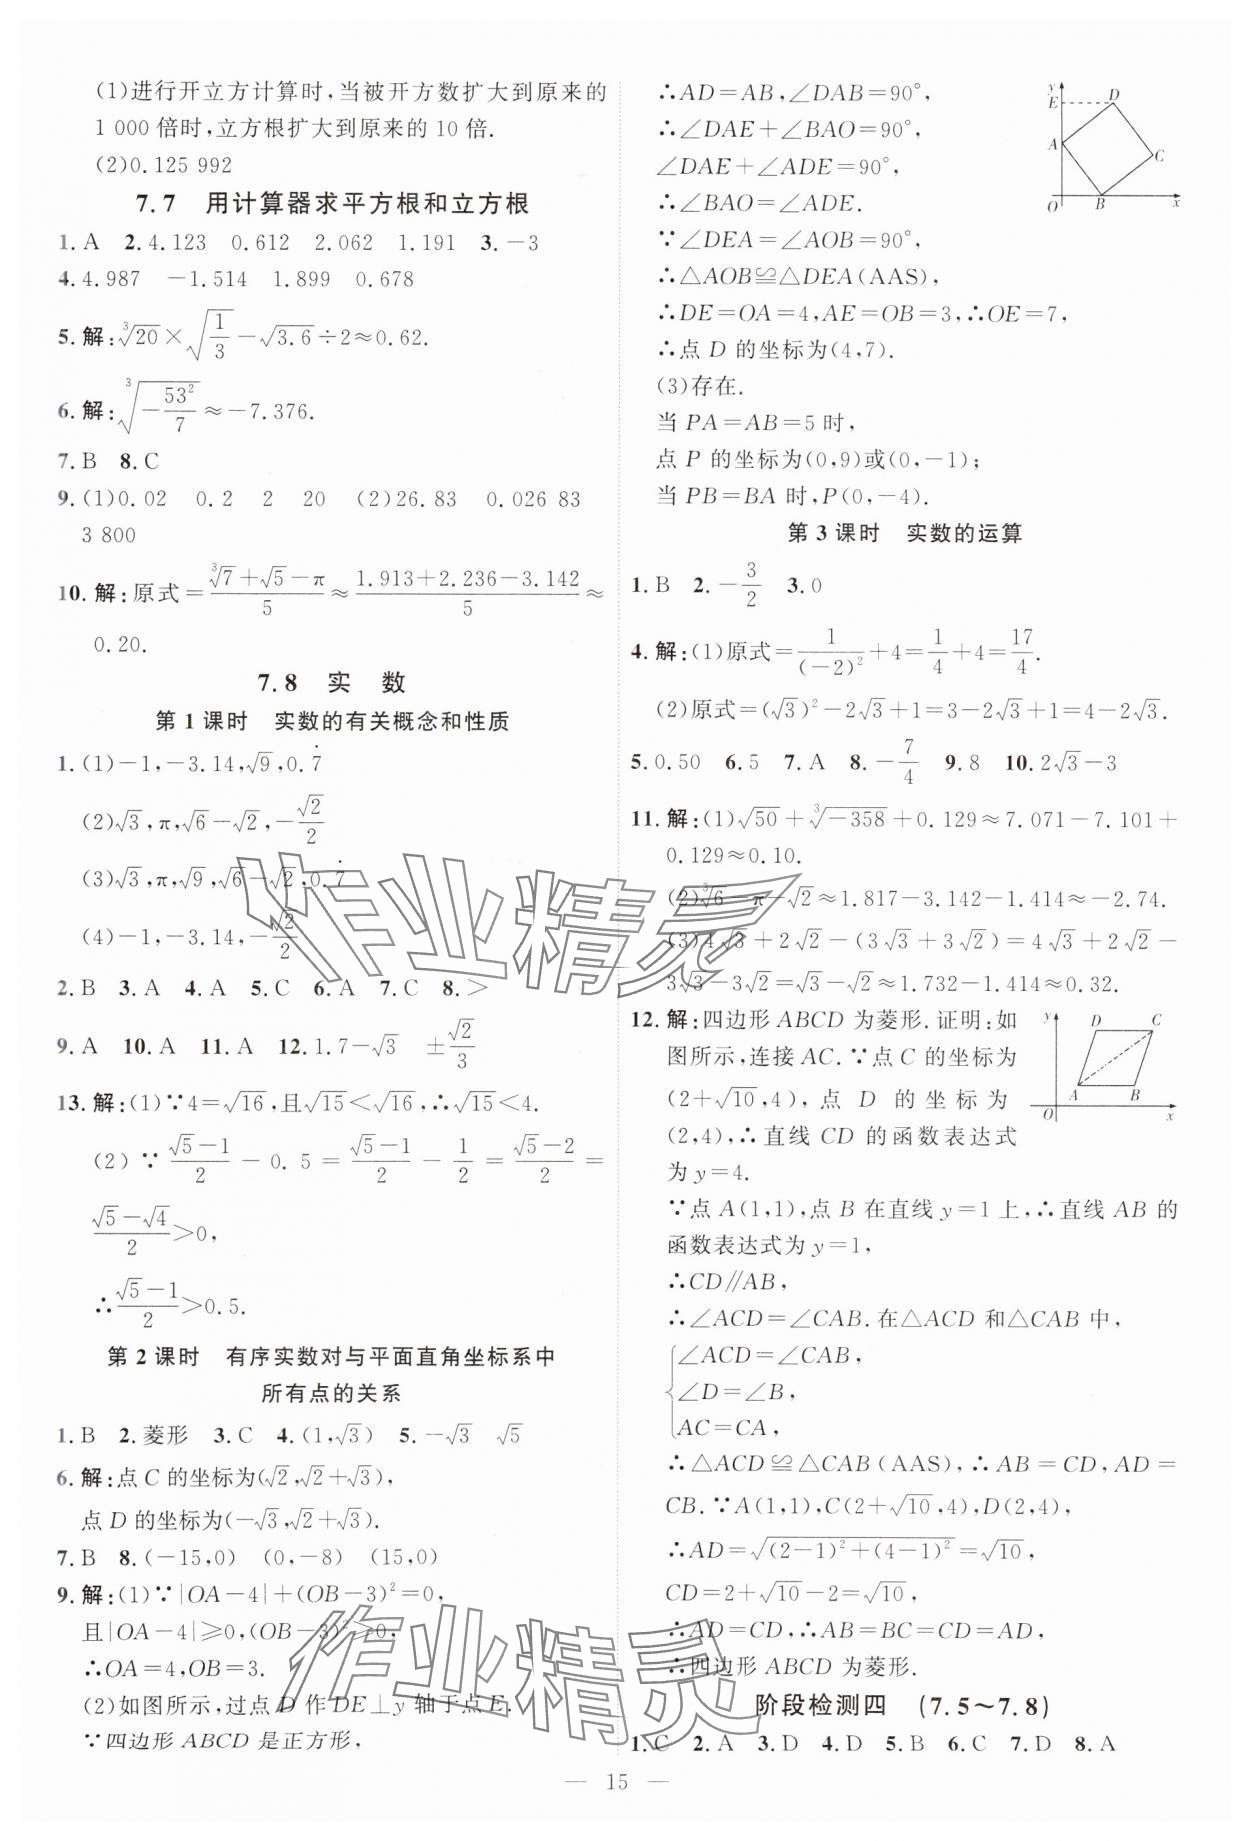 (1)进行开立方计算时,当被开方数扩大到原来的
1 000 倍时,立方根扩大到原来的 10 倍.
(2)0.125 992
7.7 用计算器求平方根和立方根
1. A 2. 4.123 0.612 2.062 1.191 3. −3
4. 4.987 −1.514 1.899 0.678
5. 解:∛20×√(1/3)−√3.6÷2≈0.62.
6. 解:∛(−53²/7)≈−7.376.
7. B 8. C
9. (1)0.02 0.2 2 20 (2)26.83 0.026 83
3 800
10. 解:原式=(∛7+√5−π)/5≈(1.913+2.236−3.142)/5≈
0.20.
7.8 实 数
第 1 课时 实数的有关概念和性质
1. (1)−1,−3.14,√9,0.7̇
(2)√3,π,√6−√2,−√2/2
(3)√3,π,√9,√6−√2,0.7̇
(4)−1,−3.14,−√2/2
2. B 3. A 4. A 5. C 6. A 7. C 8. >
9. A 10. A 11. A 12. 1.7−√3 ±√2/3
13. 解:(1)∵4=√16,且√15<√16,∴√15<4.
(2)∵(√5−1)/2−0.5=(√5−1)/2−1/2=(√5−2)/2=
(√5−√4)/2>0,
∴(√5−1)/2>0.5.
第 2 课时 有序实数对与平面直角坐标系中
所有点的关系
1. B 2. 菱形 3. C 4. (1,√3) 5. −√3 √5
6. 解:点 C 的坐标为(√2,√2+√3),
点 D 的坐标为(−√3,√2+√3).
7. B 8. (−15,0) (0,−8) (15,0)
9. 解:(1)∵|OA−4|+(OB−3)²=0,
且|OA−4|≥0,(OB−3)²≥0,
∴OA=4,OB=3.
(2)如图所示,过点 D 作 DE⊥y 轴于点 E.
∵四边形 ABCD 是正方形,
∴AD=AB,∠DAB=90°,
∴∠DAE+∠BAO=90°,
∠DAE+∠ADE=90°,
∴∠BAO=∠ADE.
∵∠DEA=∠AOB=90°,
∴△AOB≌△DEA(AAS),
∴DE=OA=4,AE=OB=3,∴OE=7,
∴点 D 的坐标为(4,7).
(3)存在.
当 PA=AB=5 时,
点 P 的坐标为(0,9)或(0,−1);
当 PB=BA 时,P(0,−4).
y
E D
A
C
O B x
第 3 课时 实数的运算
1. B 2. −3/2 3. 0
4. 解:(1)原式=1/(−2)²+4=1/4+4=17/4.
(2)原式=(√3)²−2√3+1=3−2√3+1=4−2√3.
5. 0.50 6. 5 7. A 8. −7/4 9. 8 10. 2√3−3
11. 解:(1)√50+∛−358+0.129≈7.071−7.101+
0.129≈0.10.
(2)∛6−π−√2≈1.817−3.142−1.414≈−2.74.
(3)4√3+2√2−(3√3+3√2)=4√3+2√2−
3√3−3√2=√3−√2≈1.732−1.414≈0.32.
12. 解:四边形 ABCD 为菱形.证明:如
图所示,连接 AC.∵点 C 的坐标为
(2+√10,4),点 D 的坐标为
(2,4),∴直线 CD 的函数表达式
为 y=4.
y D C
A B
O x
∵点 A(1,1),点 B 在直线 y=1 上,∴直线 AB 的
函数表达式为 y=1,
∴CD∥AB,
∴∠ACD=∠CAB.在△ACD 和△CAB 中,
{∠ACD=∠CAB,
∠D=∠B,
AC=CA,
∴△ACD≌△CAB(AAS),∴AB=CD,AD=
CB.∵A(1,1),C(2+√10,4),D(2,4),
∴AD=√((2−1)²+(4−1)²)=√10,
CD=2+√10−2=√10,
∴AD=CD,∴AB=BC=CD=AD,
∴四边形 ABCD 为菱形.
阶段检测四 (7.5~7.8)
1. C 2. A 3. D 4. D 5. B 6. C 7. D 8. A
— 15 —
作业精灵
作业精灵